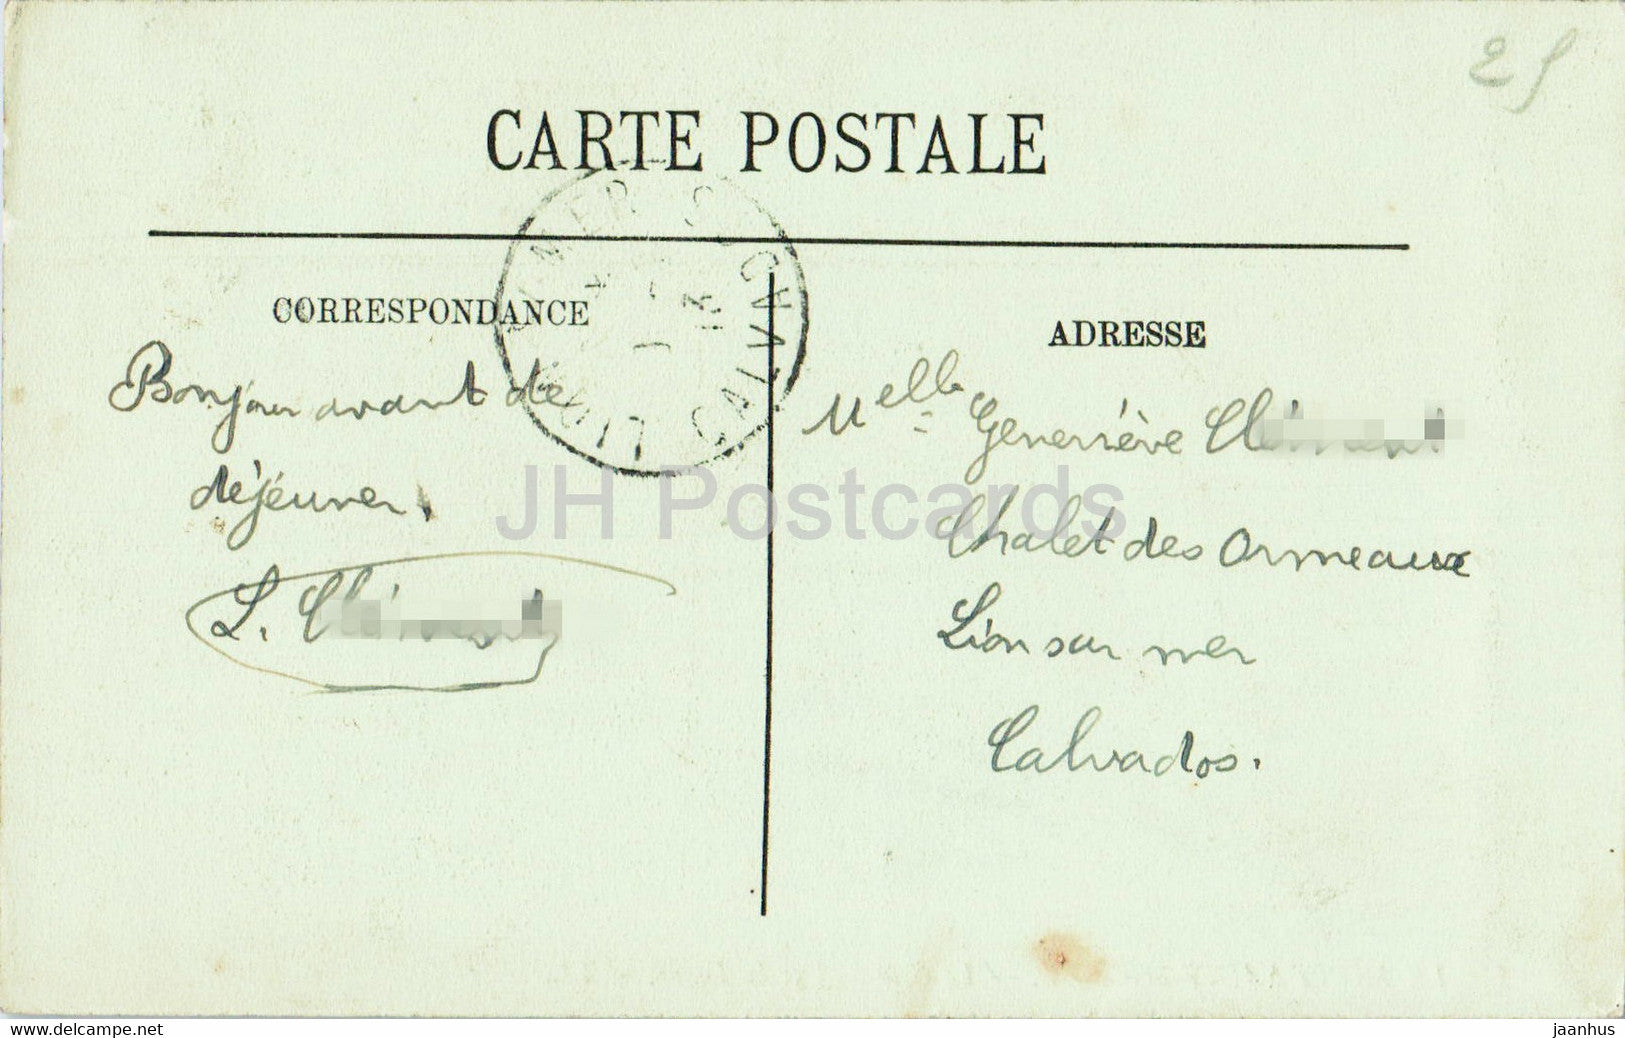 25
CARTE POSTALE
CORRESPONDANCE
Bonjour avant de
déjeuner.
L.
ADRESSE
Melle Geneviève
Chalet des Ormeaux
Lion sur mer
Calvados.
LION S MER
13
CALVADOS
JH Postcards
www.delcampe.net
jaanhus